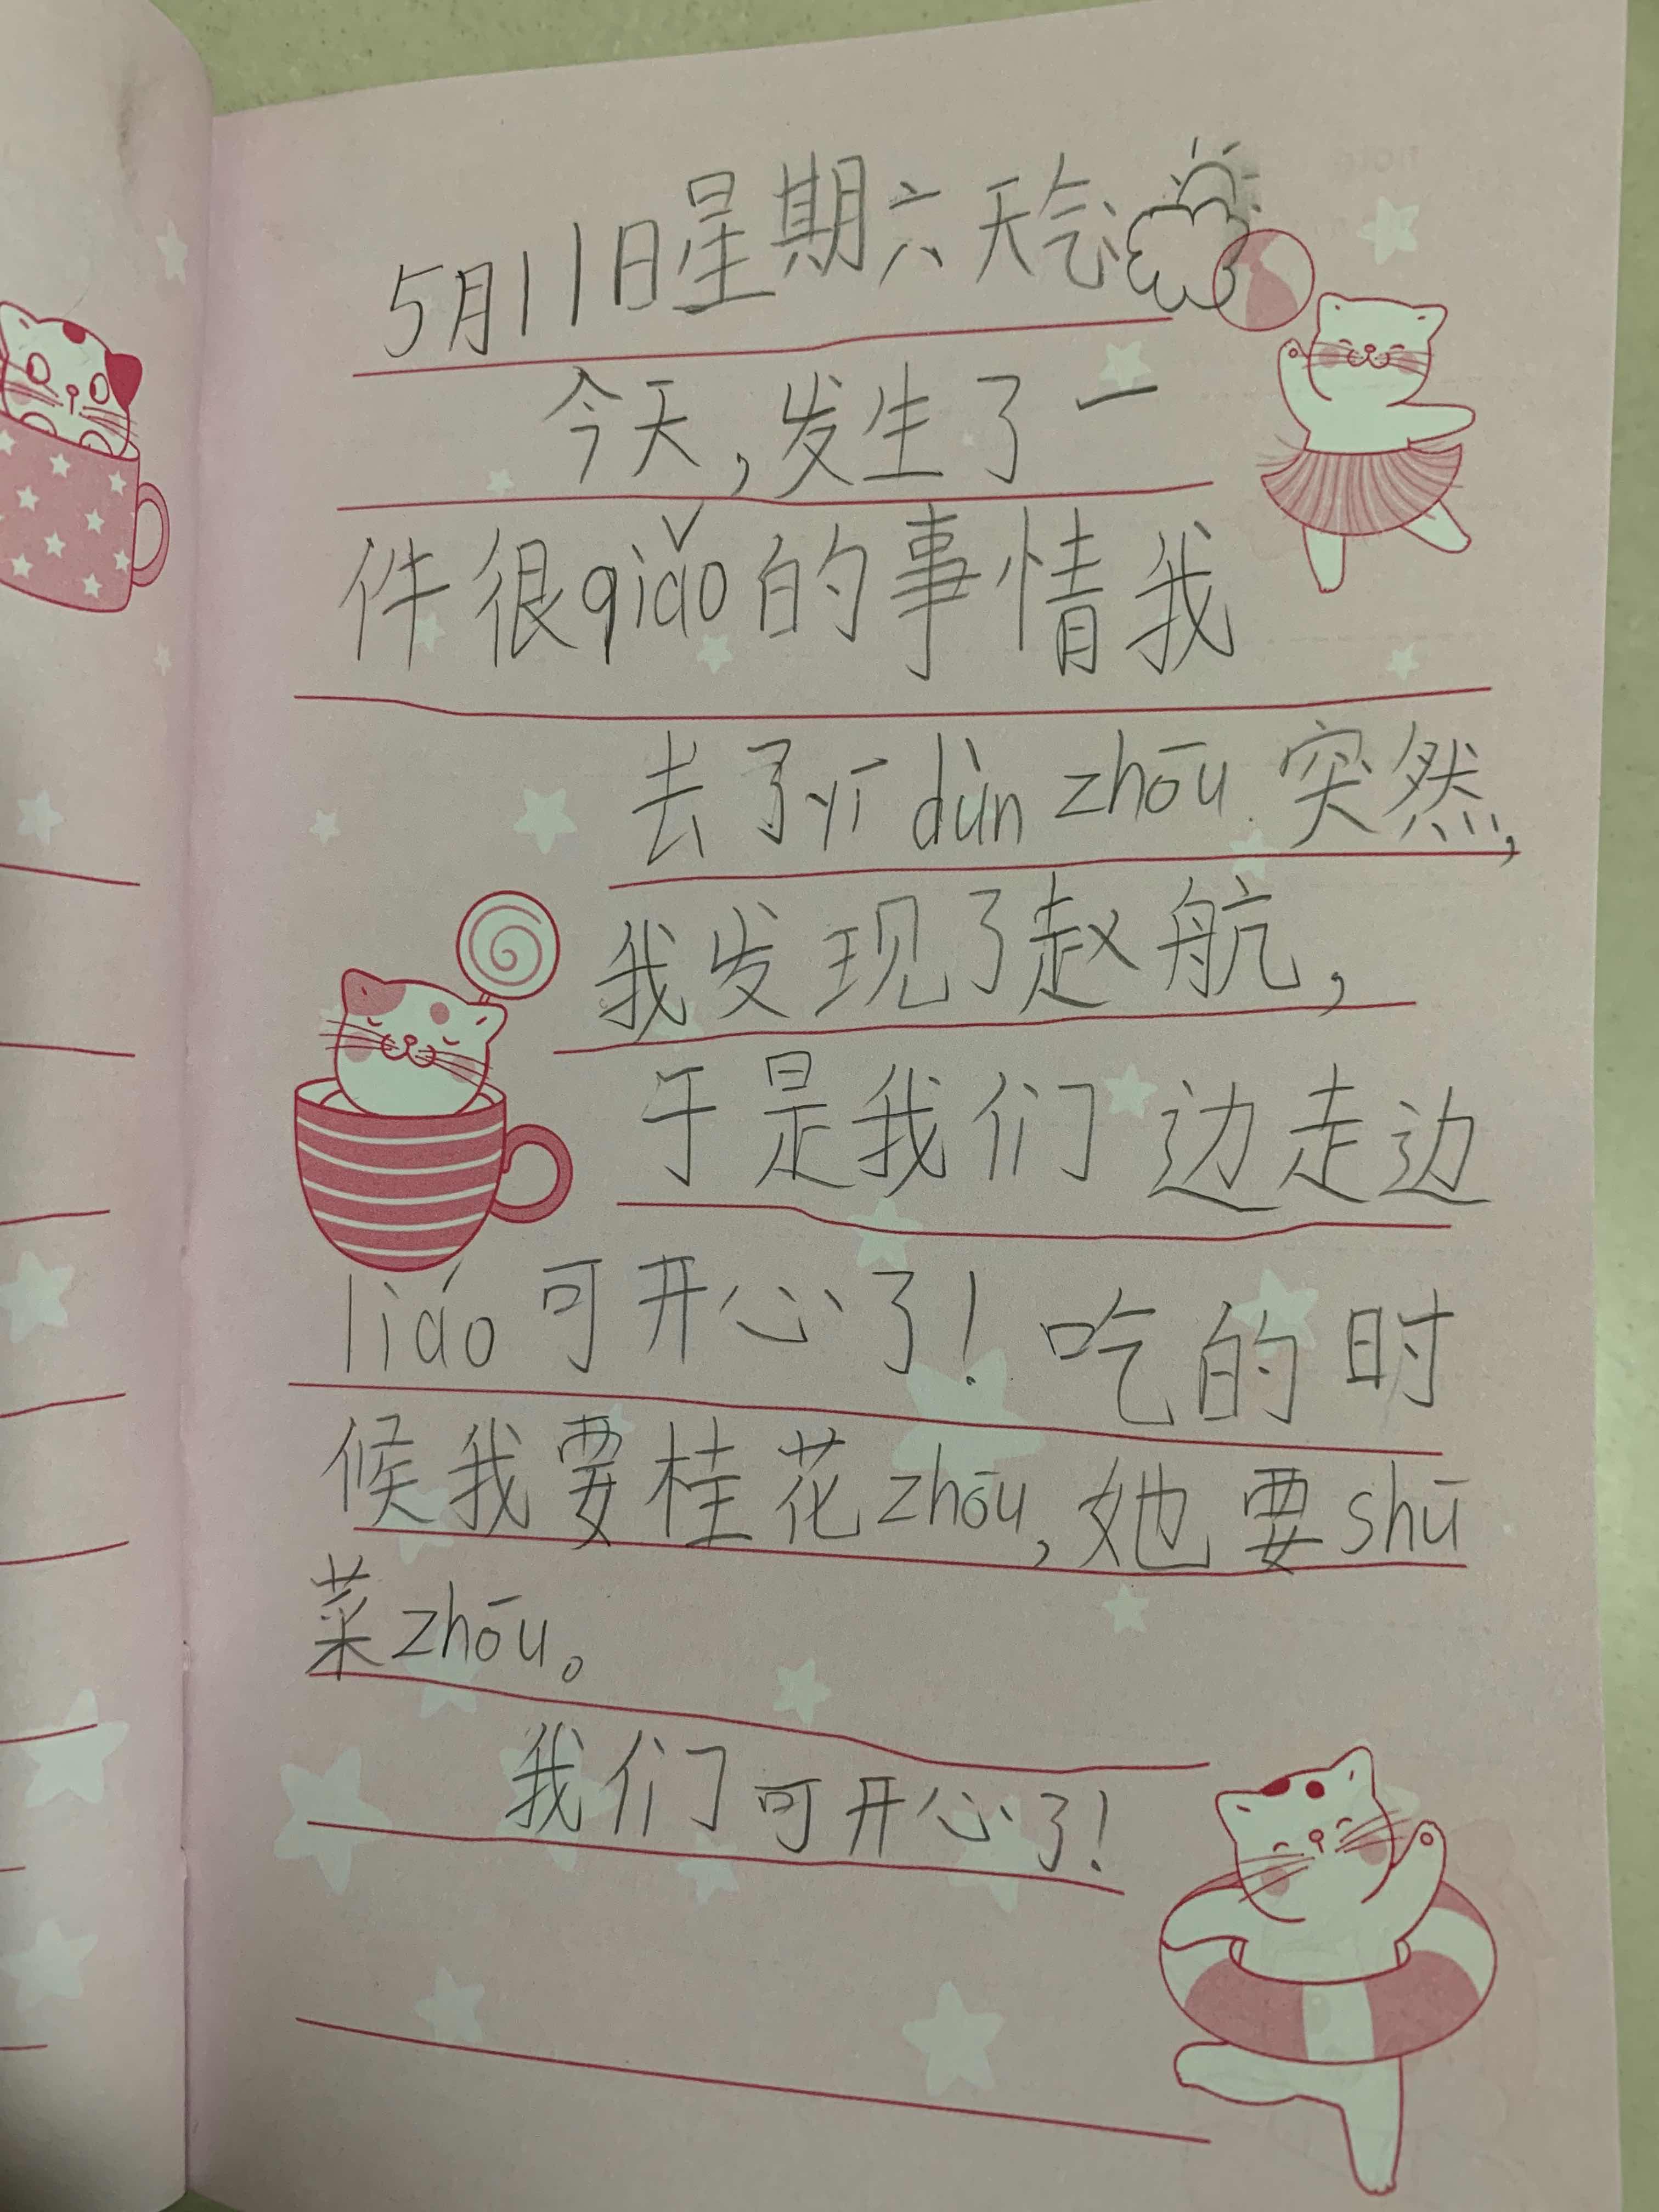 5月11日星期六天气
今天,发生了一
件很qiǎo的事情我
去了yī dùn zhōu.突然,
我发现了赵航,
于是我们边走边
liáo可开心了!吃的时
候我要桂花zhōu,她要shū
菜zhōu。
我们可开心了!